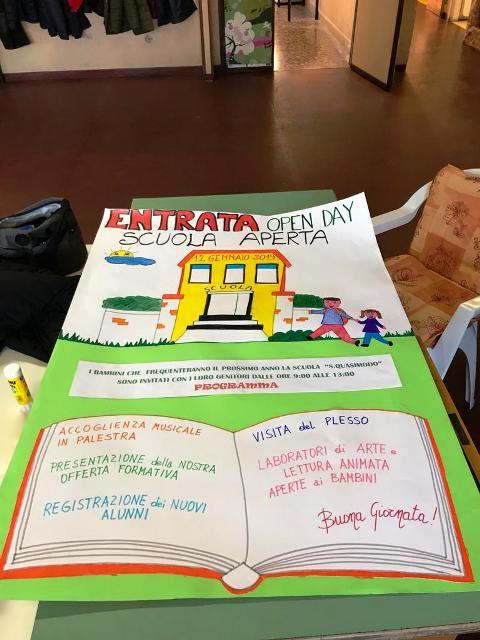 ENTRATA OPEN DAY
SCUOLA APERTA
12 GENNAIO 2019
SCUOLA
I BAMBINI CHE FREQUENTERANNO IL PROSSIMO ANNO LA SCUOLA "S.QUASIMODO"
SONO INVITATI CON I LORO GENITORI DALLE ORE 9:00 ALLE 13:00
PROGRAMMA
ACCOGLIENZA MUSICALE
IN PALESTRA
PRESENTAZIONE della NOSTRA
OFFERTA FORMATIVA
REGISTRAZIONE dei NUOVI
ALUNNI
VISITA del PLESSO
LABORATORI di ARTE e
LETTURA ANIMATA
APERTE ai BAMBINI
Buona Giornata!